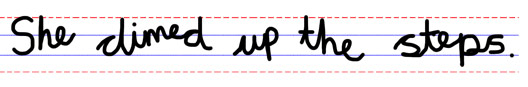 She climed up the steps.